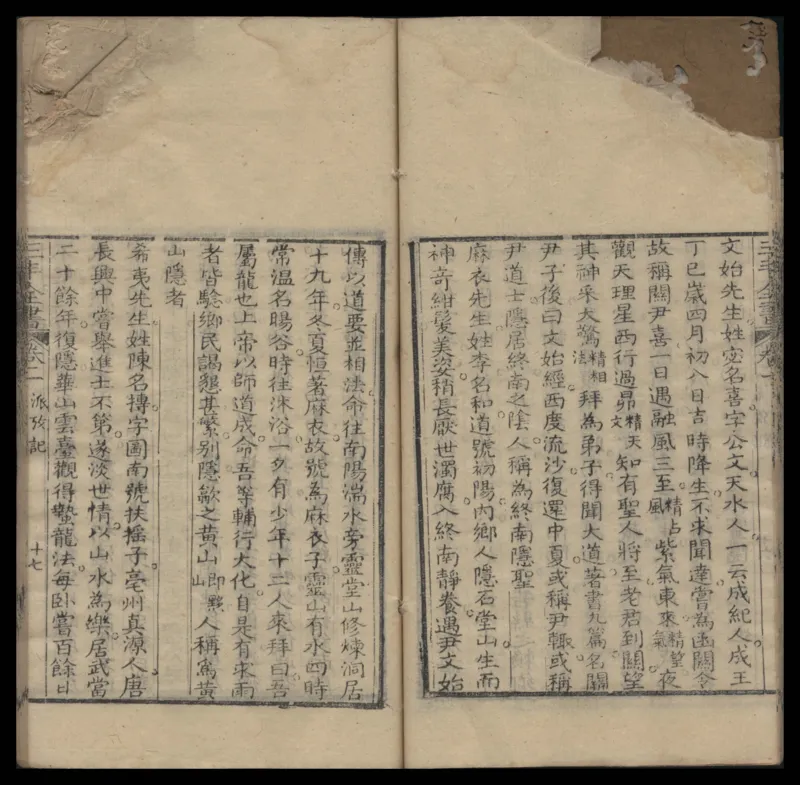 文始先生姓宓名喜字公文天水人一云成紀人成王
丁巳歲四月初八日吉時降生不求聞達嘗為函關令
故稱關尹喜一日遇融風三至精占風紫氣東來精望氣夜
觀天理星西行過昴精天文知有聖人將至老君到關望
其神采大驚精相法拜為弟子得聞大道著書九篇名關
尹子後曰文始經西度流沙復還中夏或稱尹軌或稱
尹道士隱居終南之陰人稱為終南隱聖
麻衣先生姓李名和道號初陽內鄉人隱石堂山生而
神奇紺髮美姿稍長厭世濁腐入終南靜養遇尹文始
三丰全書
卷二
派攷記
十七
傳以道要並相法命往南陽湍水旁靈堂山修煉洞居
十九年冬夏恒著麻衣故號為麻衣子靈山有水四時
常温名暘谷時往沐浴一夕有少年十二人來拜曰吾
屬龍也上帝以師道成命吾等輔行大化自是有求雨
者皆驗鄉民謁懇甚繁別隱歙之黃山即黟山人稱為黃
山隱者
希夷先生姓陳名摶字圖南號扶搖子亳州真源人唐
長興中嘗舉進士不第遂淡世情以山水為樂居武當
二十餘年復隱華山雲臺觀得蟄龍法每臥嘗百餘日